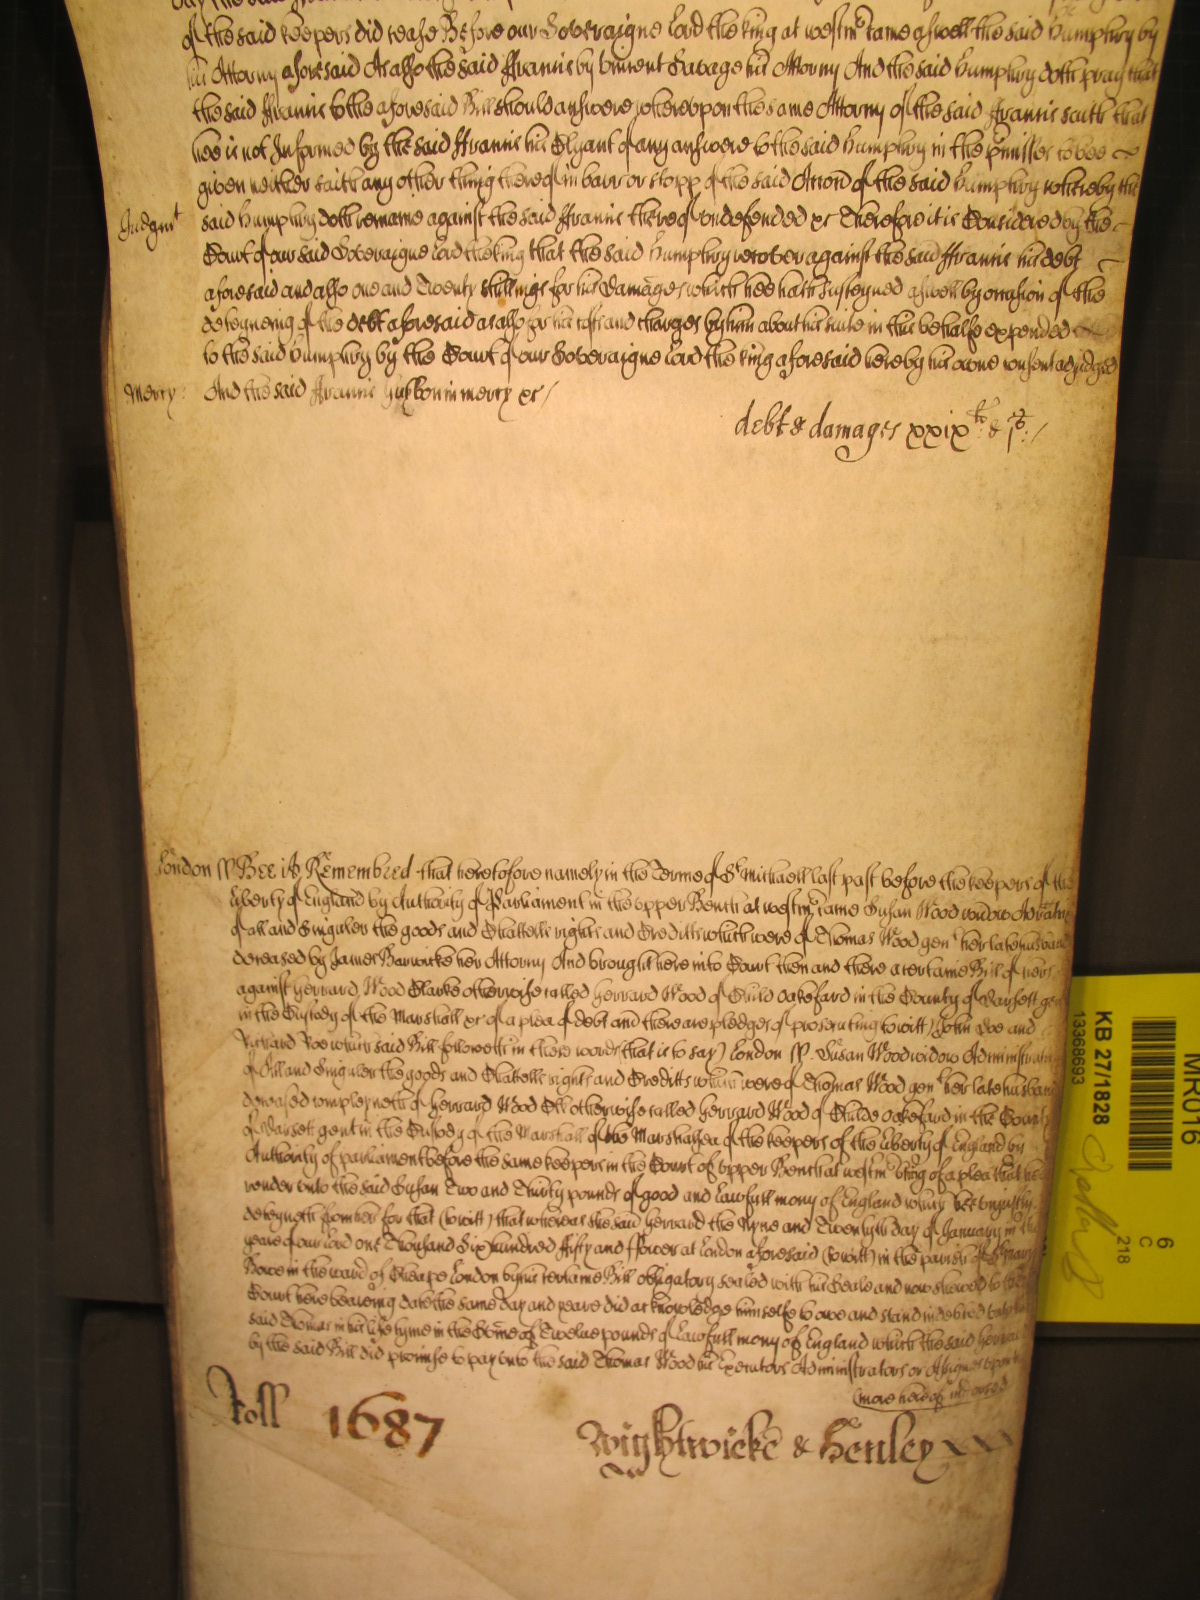 of the said keepers did cease Before our Soveraigne Lord the king at westm^r came aswell the said Humphry by
his Attorny aforesaid As also the said Francis by Vincent Savage his Attorny And the said Humphry doth pray that
the said Francis to the aforesaid Bill should answere whereupon the same Attorny of the said Francis saith that
hee is not Informed by the said Francis his Clyant of any answere to the said Humphry in the p'misses to bee
given neither saith any other thing thereof in barr or stopp of the said Accon of the said Humphry whereby the
said Humphry doth remaine against the said Francis thereof vndefended &c Therefore it is Considered by the
Judgm^t
Court of our said Soveraigne Lord the king that the said Humphry recover against the said Francis his debt
aforesaid and also one and Twenty shillings for his Damages which hee hath susteyned aswell by occasion of the
deteyneing of the debt aforesaid as also for his costs and charges by him about his suite in this behalfe expended
to the said Humphry by the Court of our Soveraigne Lord the king aforesaid here by his owne consent adjudged
Mercy: And the said Francis in mercy &c /
debt & damages xxix^li & j^s /
London ss Bee it Remembred that heretofore namely in the Terme of S^t Michaell last past before the keepers of the
Liberty of England by Authority of Parliament in the vpper Bench at westm^r came Susan Wood widow
of all and Singuler the goods and Chattells rights and Creditts which were of Thomas Wood gen^t her late husband
deceased by James Barwicke her Attorny And brought here into Court then and there a certaine Bill of hers
against Gerrard Wood Clarke otherwise called Gerrard Wood of Child Oakeford in the County of Dorsett
in the Custody of the Marshall &c of a plea of debt and there are pledges of prosecuting (towitt) John Doe and
Richard Roe which said Bill followeth in these words (that is to say) London ss. Susan Wood widow
of All and Singuler the goods and Chattells rights and Creditts which were of Thomas Wood gen^t her late husband
deceased compleyneth of Gerrard Wood Clk otherwise called Gerrard Wood of Childe Oakeford in the County
of Dorsett gent in the Custody of the Marshall of the Marshalsea of the keepers of the liberty of England by
Authority of parliament before the same keepers in the Court of vpper Bench at westm^r being of a plea that hee
render vnto the said Susan Two and Thirty pounds of good and lawfull mony of England which hee vnjustly
deteyneth from her for that (towitt) that whereas the said Gerrard the Nyne and Twentyth day of January in the
yeare of our Lord one Thousand Six hundred fifty and fower at London aforesaid (towitt) in the parish of S^t Mary
Bowe in the ward of Cheape London by his certaine Bill obligatory sealed with his Seale and now shewed to the
Court here beareing date the same day and yeare did acknowledge himselfe to owe and stand indebted to the
said Thomas in his life tyme in the Some of Twelve pounds of Lawfull mony of England which the said Gerrard
by the said Bill did promise to pay vnto the said Thomas Wood his Executors Administrators or Assignes vpon
(more hereof indorsed
Roll 1687 Wightwicke & Henley
MR016
KB 27/1828
13368693
6
C
218